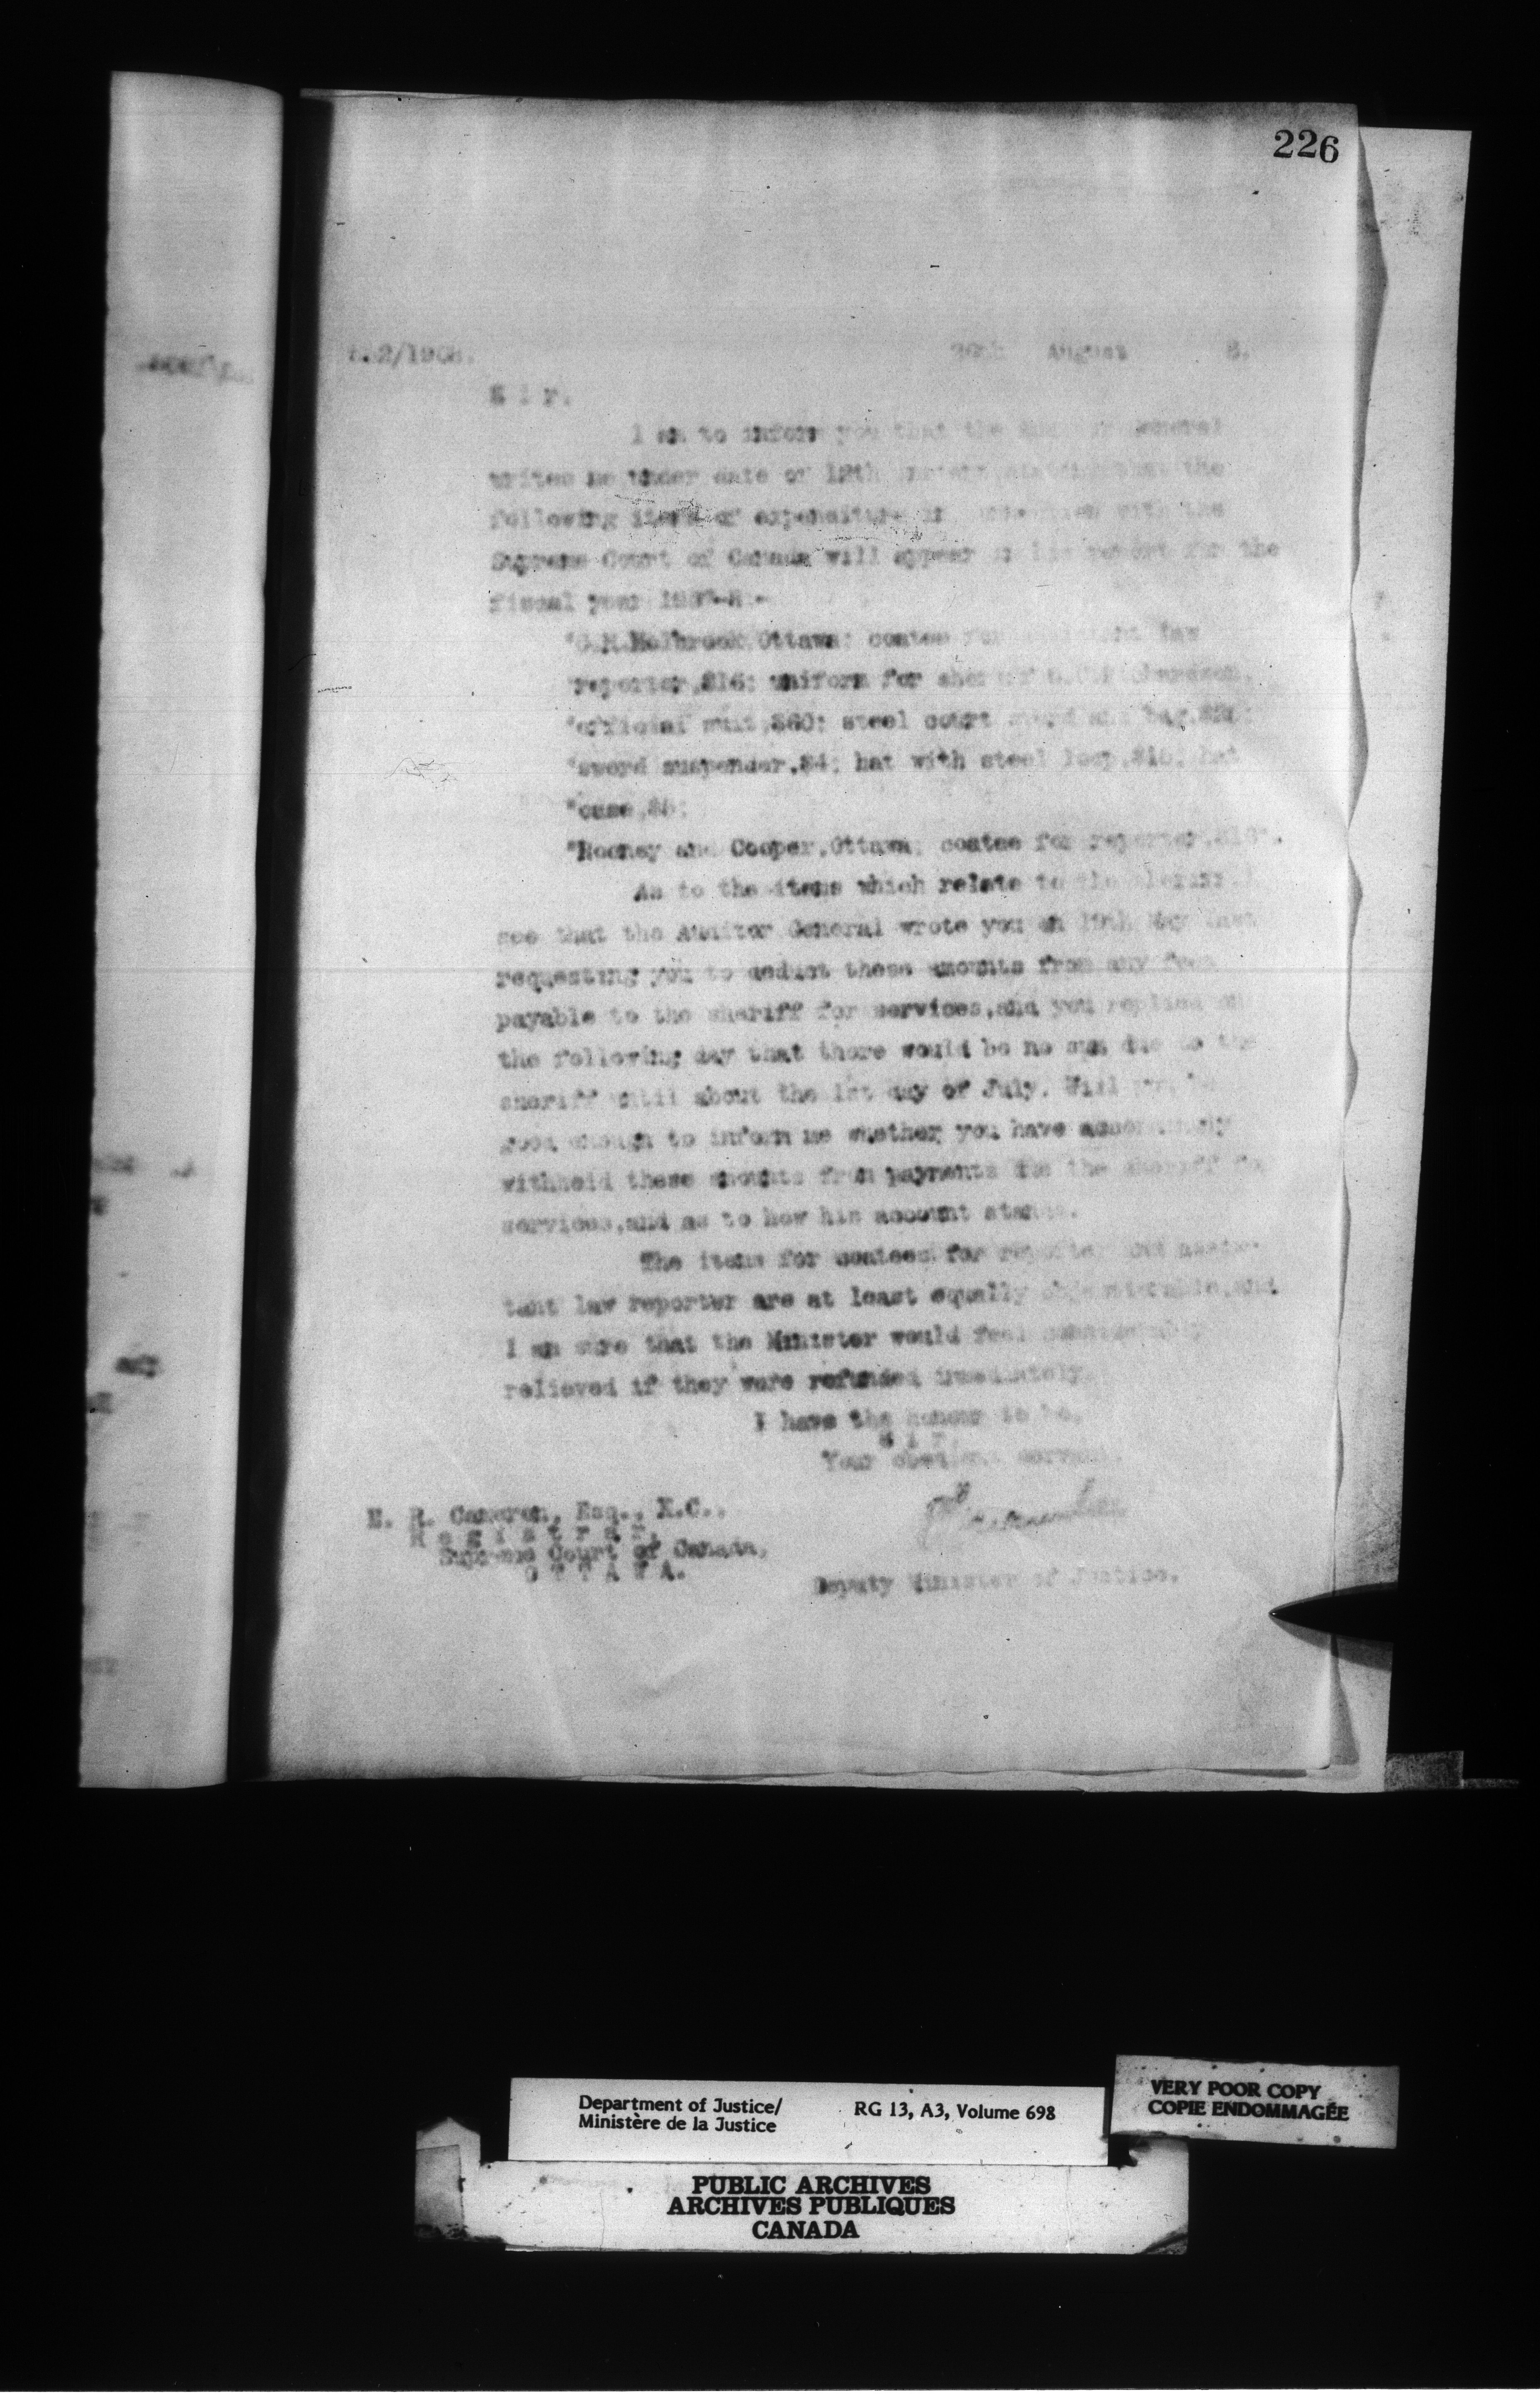 226
August 8.
S i r.
I am to inform you that the General
writes me under date of 12th that the
following items of expenditure in with the
Supreme Court of Canada will appear in his report for the
fiscal year 1907-8:-
"C.M.Holbrook,Ottawa; coatee for law
"reporter,$16; uniform for sheriff
"official suit,$60; steel court sword and bag,
"sword suspender,$4; hat with steel loop,$16; hat
"case,$5;
"Rooney and Cooper,Ottawa; coatee for reporter,
As to the items which relate to the sheriff,I
see that the Auditor General wrote you on 19th May last
requesting you to deduct these amounts from any fees
payable to the sheriff for services,and you replied on
the following day that there would be no sum due to the
sheriff until about the 1st day of July. Will you be
good enough to inform me whether you have accordingly
withheld these amounts from payments due the sheriff for
services,and as to how his account stands.
The items for coatees for reporter and assis-
tant law reporter are at least equally objectionable,and
I am sure that the Minister would feel considerably
relieved if they were refunded immediately.
I have the honour to be,
S i r,
Your obedient servant,
E. R. Cameron, Esq., K.C.,
R e g i s t r a r,
Supreme Court of Canada,
O T T A W A.
Deputy Minister of Justice.
Department of Justice/ RG 13, A3, Volume 698
Ministère de la Justice
VERY POOR COPY
COPIE ENDOMMAGÉE
PUBLIC ARCHIVES
ARCHIVES PUBLIQUES
CANADA